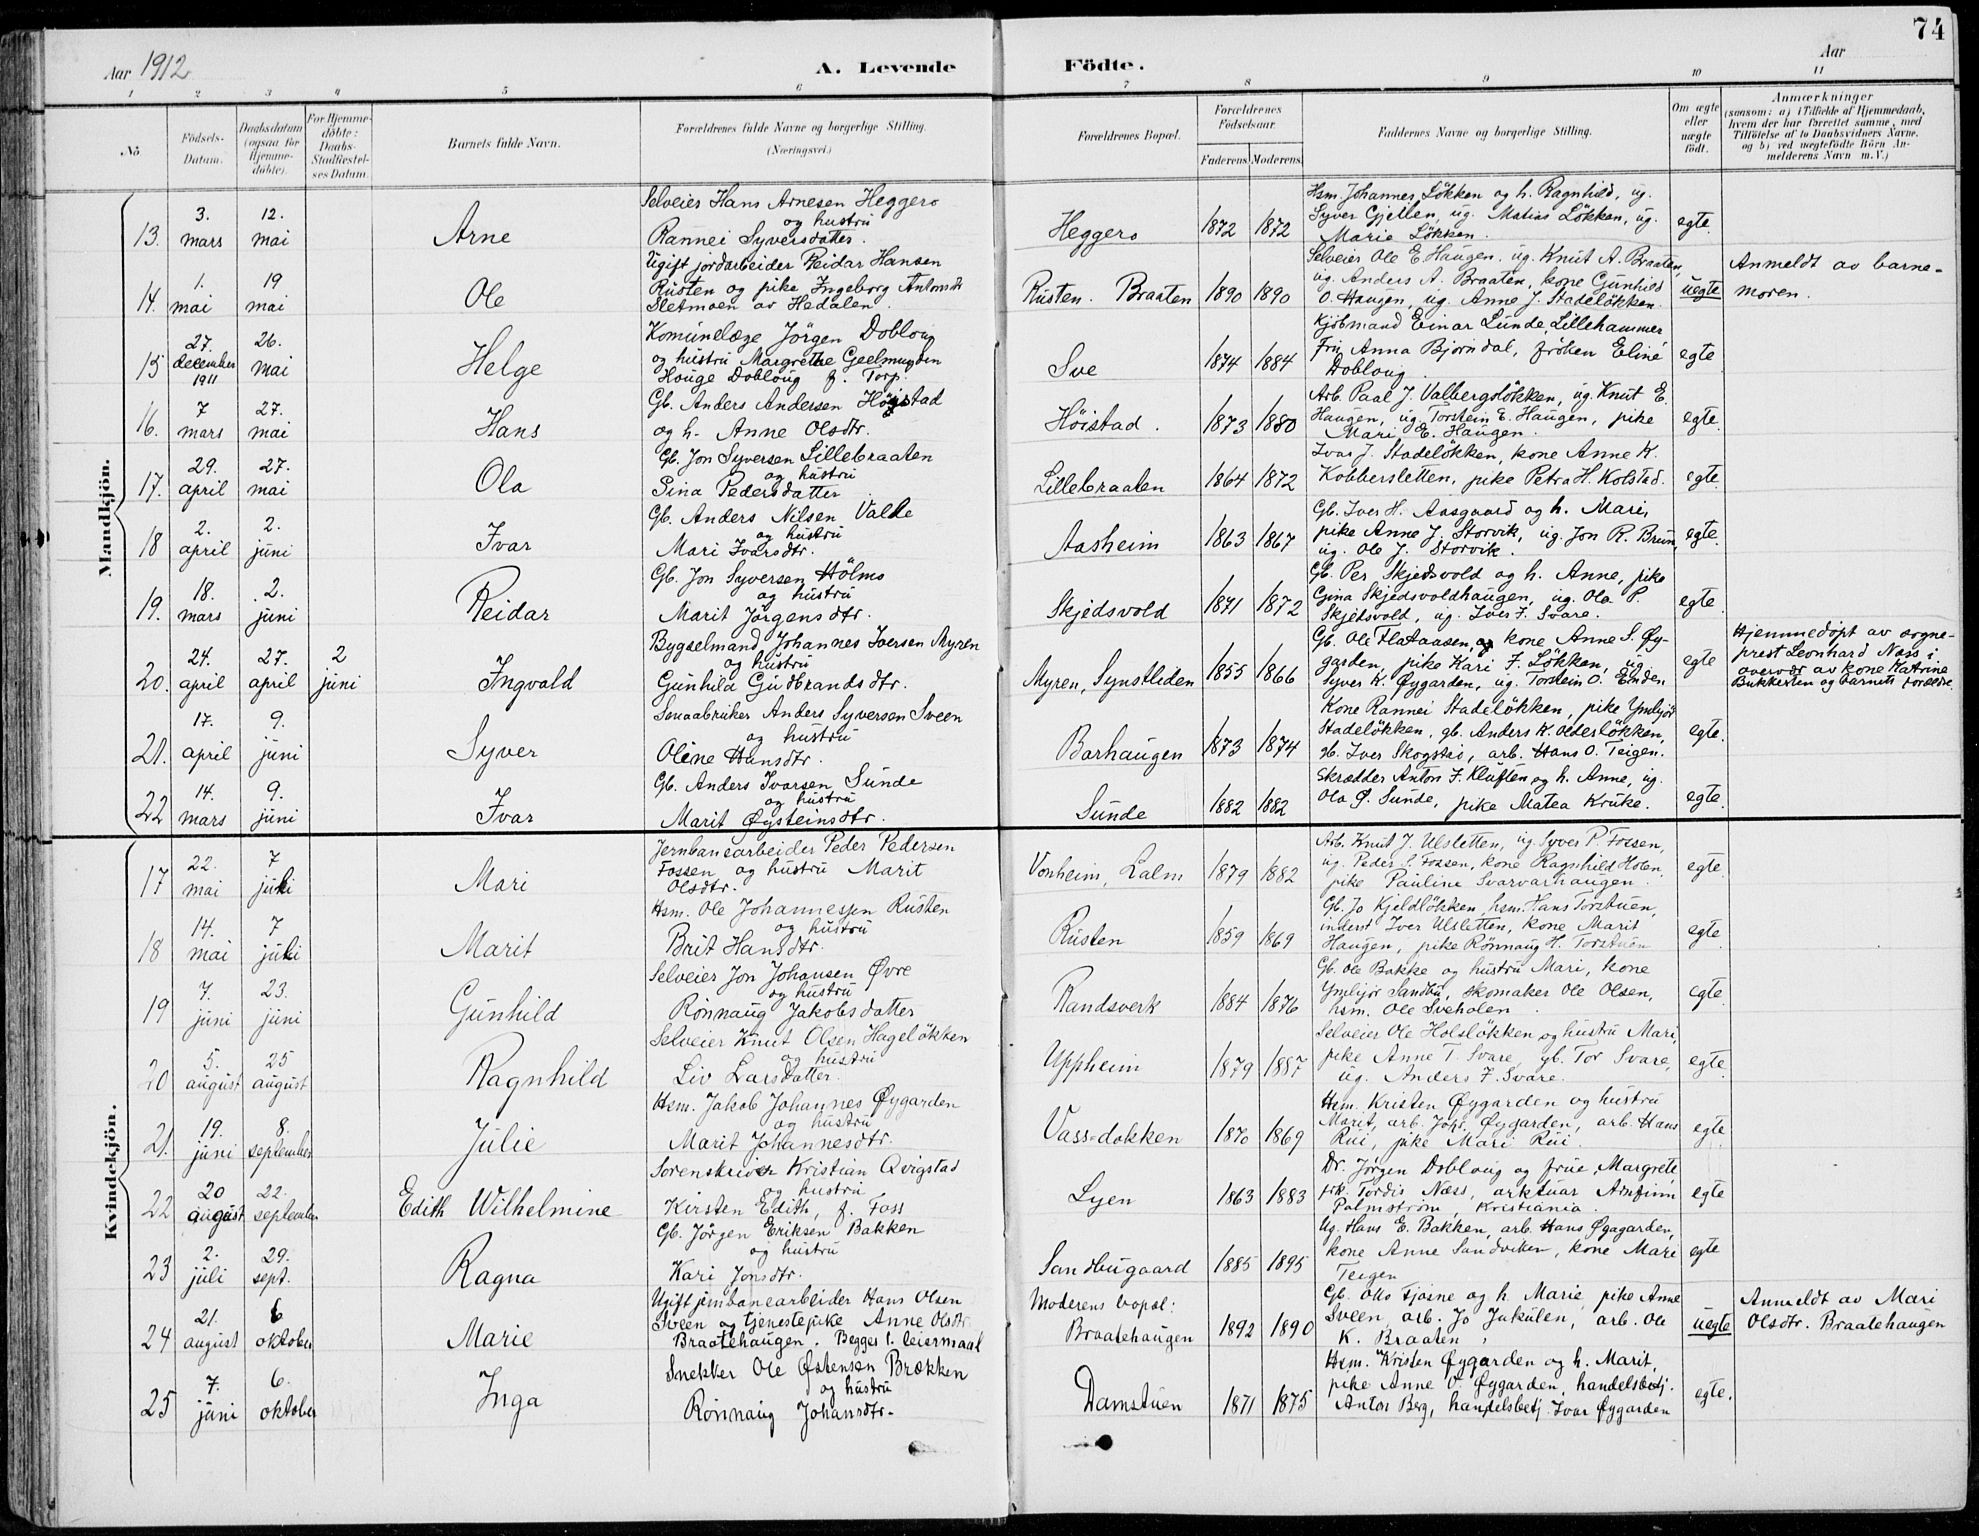 74
Aar 1912
A. Levende Födte.
Aar
1 2 3 4 5 6 7 8 9 10 11
No
Födsels-Datum.
Daabsdatum (ogsaa for Hjemme-døbte).
For Hjemme-døbte: Daabs-Stadfæstel-ses Datum.
Barnets fulde Navn.
Forældrenes fulde Navne og borgerlige Stilling. (Næringsvei.)
Forældrenes Bopæl.
Forældrenes Födselsaar.
Faderens. Moderens.
Faddernes Navne og borgerlige Stilling.
Om ægte eller uægte født.
Anmærkninger
(saasom: a) i Tilfælde af Hjemmedaab, hvem der har forrettet samme, med Tilföielse af to Daabsvidners Navne. og b) ved uægtefödte Börn An-melderens Navn m.V.)
Mandkjön.
13. 3. mars 12. mai Arne
Selveier Hans Arnesen Heggero
og hustru
Rannei Syversdatter.
Heggero 1872 1872
Hsm. Johannes Lökken og h. Ragnhild, ug.
Syver Gjetlen, ug. Matias Lökken, ug.
Marie Lökken.
egte.
14. 1. mai 19 mai Ole
Ugift jordarbeider Reidar Hansen
Rusten og pike Ingeborg Antonsdtr
Sletmoen av Hedalen.
Rusten. Braaten 1890 1890
Selveier Ole E. Haugen, ug. Knut A. Braaten,
ug. Anders A. Braaten, kone Gunhild
O. Haugen, ug. Anne J. Stadelökken.
uegte
Anmeldt av barne-
moren.
15 27. december 1911 26. mai Helge
Komunelæge Jörgen Dobloug
og hustru Margrethe Geelmuyden
Houge Dobloug f. Torp.
Sve 1874 1884
Kjöbmand Einar Lunde, Lillehammer
Fru Anna Bjorndal, fröken Eline
Dobloug.
egte
16. 7 mars 27. mai Hans
Gb. Anders Andersen Höistad
og h. Anne Olsdtr.
Höistad. 1873 1880
Arb. Paal J. Valbergslökken, ug. Knut E.
Haugen, ug. Torstein E. Haugen, pike
Mari E. Haugen.
egte.
17. 29. april 27. mai Ola
Gb. Jon Syversen Lillebraaten
og hustru
Sina Pedersdatter
Lillebraaten 1864 1872
Ivar J. Stadelökken, kone Anne K.
Kobbersletten, pike Petra H. Kolstad.
egte.
18 2. april 2. juni Ivar
Gb. Anders Nilsen Valle
og hustru
Mari Ivarsdtr.
Aasheim 1863 1867
Gb. Iver H. Aasgaard og h. Mari,
pike Anne J. Storvik, ug. Jon R. Brun,
ug. Ole J. Storvik.
egte.
19. 18. mars 2. juni Reidar
Gb. Jon Syversen Hölmo
og hustru
Marit Jörgensdtr.
Skjedsvold 1871 1872
Gb. Per Skjedsvold og h. Anne, pike
Gina Skjedsvoldhaugen, ug. Ola P.
Skjedsvold, ug. Iver F. Svare.
egte
20. 24. april 27. april 2 juni Ingvald
Bygselmand Johannes Iversen Myren
og hustru
Gunhild Gudbrandsdtr.
Myren, Synstlien 1855 1866
Gb. Ole Flataasen, og kone Anne S. Øy-
garden, pike Kari F. Lökken, ug.
Syver K. Øygarden, ug. Torstein O. Enden
egte
Hjemmedöpt av sogne-
prest Leonhard Næss i
overvær av kone Katrine
Bukkesten og barnets forældre.
21. 17. april 9. juni Syver
Anders Syversen Sveen
og hustru
Oline Hansdtr.
Barhaugen 1873 1874
Kone Rannei Stadelökken, pike Ymbjör
Stadelökken, gb. Anders K. Olderlökken,
gb. Iver Skogstad, arb. Hans O. Teigen.
egte.
22 14. mars 9. juni Ivar
Gb. Anders Ivarsen Sunde
og hustru
Marit Øysteinsdtr.
Sunde 1882 1882
Skrædder Anton F. Kluften og h. Anne, ug.
Ola Ø. Sunde, pike Matea Kruke.
egte.
Kvindekjön.
17 22. mai 7 juli Mari
Jernbanearbeider Peder Pedersen
Fossen og hustru Marit
Olsdtr.
Vonheim, Lalm 1879 1882
Arb. Knut J. Ulsletten, ug. Syver P. Fossen,
ug. Peder S. Fossen, kone Ragnhild Holen,
pike Pauline Svarvarhaugen.
egte.
18 14. mai 7 juli Marit
Hsm. Ole Johannessen Rusten
og hustru
Brit Hansdtr.
Rusten 1859 1869
Gb. Jo Kjeldlökken, hsm. Hans Torstuen,
inderst Iver Ulsletten, kone Marit
Haugen, pike Rönnaug H. Torstuen
egte.
19 7. juni 23. juni Gunhild
Selveier Jon Johansen Øvre
og hustru
Rönnaug Jakobsdatter
Randsverk 1884 1876
Gb. Ole Bakke og hustru Mari, kone
Ymbjör Sandbu, skomaker Ole Olsen,
hsm. Ole Sveholen.
egte
20 5. august 25 august Ragnhild
Selveier Knut Olsen Hagelökken
og hustru
Liv Larsdatter.
Uppheim 1879 1887
Selveier Ole Holslökken og hustru Mari,
pike Anne T. Svare, gb. Tor Svare,
ug. Anders F. Svare.
egte.
21. 19. juni 8. september Julie
Hsm. Jakob Johannes Øygarden
og hustru
Marit Johannesdtr.
Vass=dokken 1870 1869
Hsm. Kristen Øygarden og hustru
Marit, arb. Joh. Øygarden, arb. Hans
Rui, pike Mari Rui.
egte
22 20 august 22. september Edith Wilhelmine
Sorenskriver Kristian Qvigstad
og hustru
Kirsten Edith, f. Foss
Lyen 1863 1883
Dr. Jörgen Dobloug og frue Margrete,
frk. Tordis Næss, arktuar Arnfinn
Palmström, Kristiania.
egte
23 2. juli 29. sept. Ragna
Gb. Jörgen Eriksen Bakken
og hustru
Kari Jonsdtr.
Sandbugaard 1885 1895
Ug. Hans E. Bakken, arb. Hans Øygarden,
kone Anne Sandviken, kone Mari
Teigen
egte
24 21. august 6 oktober Marie
Ugift jernbanearbeider Hans Olsen
Sveen og tjenestepike Anne Olsdtr.
Braatehaugen. Begges 1. leiermaal
Moderens bopæl:
Braatehaugen 1892 1890
Gb. Otto Fjosne og h. Marie, pike Anne
Sveen, arb. Jo Jukulen, arb. Ole
K. Braaten
uegte
Anmeldt av Mari
Olsdtr. Braatehaugen
25 7. juni 6. oktober Inga
Snekker Ole Østensen Brækken
og hustru
Rönnaug Johansdtr.
Damstuen 1871 1875
Hsm. Kristen Øygarden og h. Marit,
pike Anne O. Øygarden, handelsbetj.
Anton Berg, handelsbetj. Ivar Øygarden
egte.